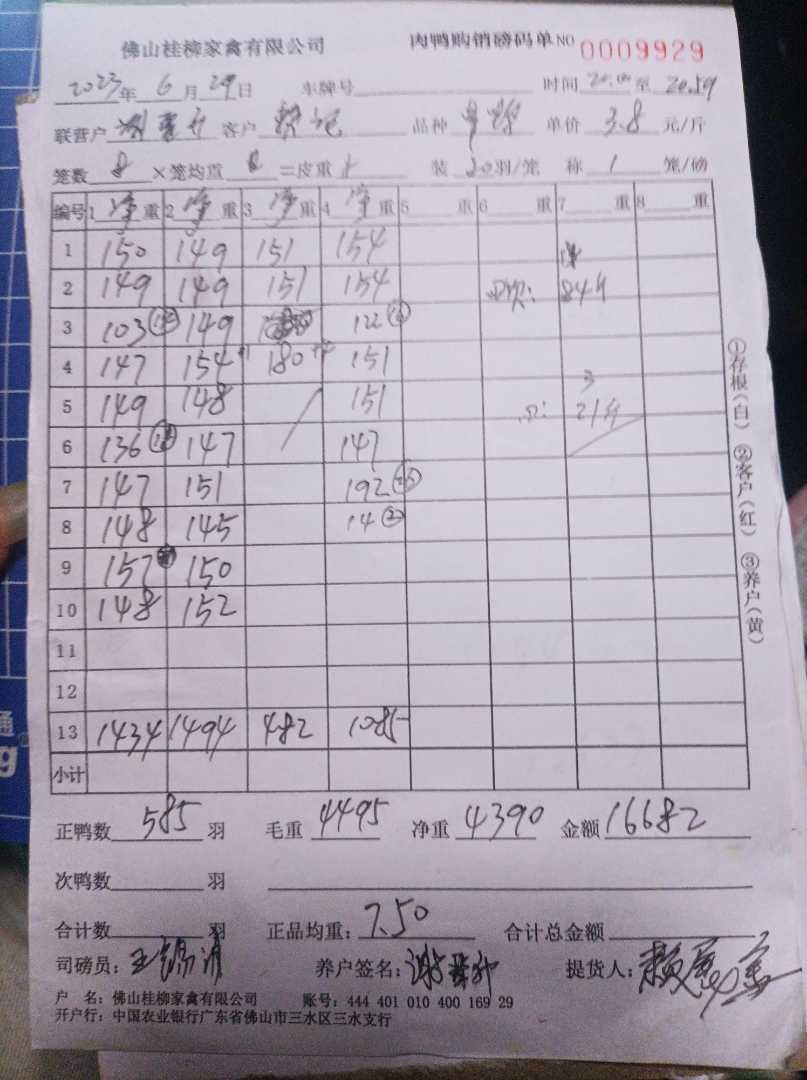 佛山桂柳家禽有限公司 肉鸭购销磅码单 NO 0009929
2023年 6月 29日 车牌号 时间 至 20.59
联营户 客户 品种 单价 3.8 元/斤
笼数 8 ×笼均重 =皮重 装 20羽/笼 称 1 笼/磅
编号 1 净重 2 净重 3 净重 4 净重 5 重 6 重 7 重 8 重
1 150 149 151 154
2 149 149 151 154 84斤
3 103 149 122
4 147 154 180 151
5 149 148 151 21斤
6 136 147 147
7 147 151 192
8 148 145 14②
9 157 150
10 148 152
11
12
13 1434 1494 482 1085
小计
①存根(白) ②客户(红) ③养户(黄)
正鸭数 585 羽 毛重 4495 净重 4390 金额 16682
次鸭数 羽
合计数 羽 正品均重: 7.50 合计总金额
司磅员: 养户签名: 提货人:
户 名: 佛山桂柳家禽有限公司 账号: 444 401 010 400 169 29
开户行: 中国农业银行广东省佛山市三水区三水支行
通
g